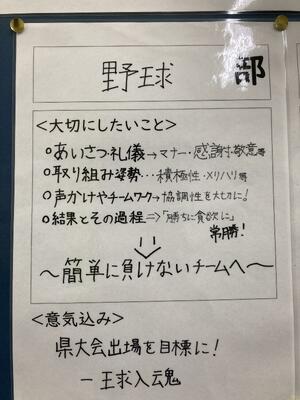 野球 部
<大切にしたいこと>
○あいさつ・礼儀→マナー・感謝・敬意等
○取り組み姿勢…積極性・メリハリ等
○声かけやチームワーク→協調性を大切に!
○結果とその過程⇒「勝ちに貪欲に」
常勝!
〜簡単に負けないチームへ〜
<意気込み>
県大会出場を目標に!
一球入魂